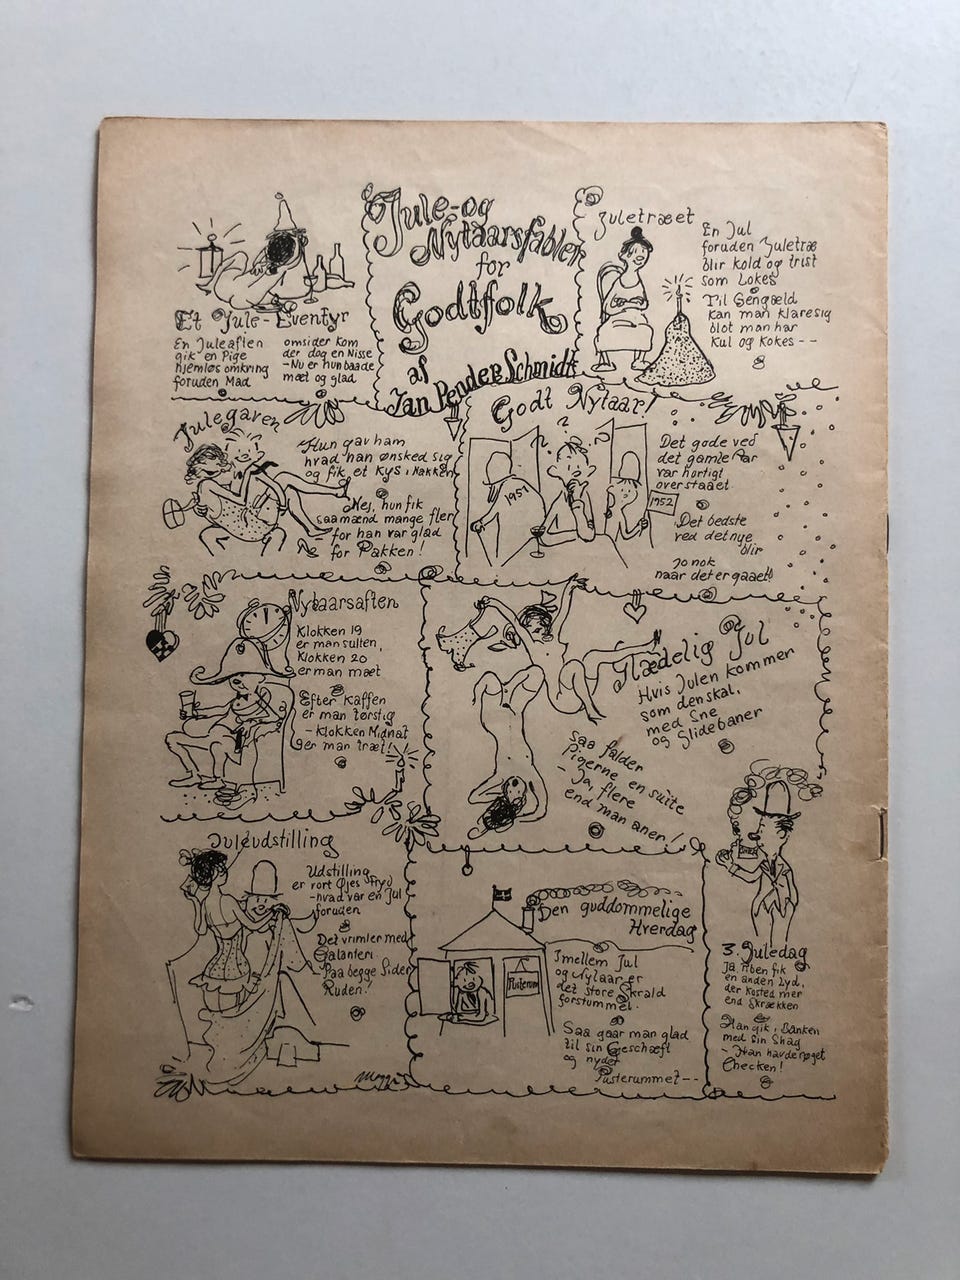 Jule-og
Nytaarsfabler
for
Godtfolk
af
Jan Pender Schmidt
Et Jule-Eventyr
En Juleaften
gik en Pige
hjemløs omkring
foruden Mad
omsider kom
der dog en Nisse
-Nu er hun baade
mæt og glad
Juletræet
En Jul
foruden Juletræ
blir kold og trist
som Lokes
Til Gengæld
kan man klare sig
blot man har
Kul og Kokes--
Julegaven
Hun gav ham
hvad han ønsked sig
og fik et Kys i Nakken
Nej, hun fik
saamænd mange fler
for han var glad
for Pakken!
Godt Nytaar!
1951
1952
Det gode ved
det gamle Aar
var hurtigt
overstaaet
Det bedste
ved det nye
blir
jo nok
naar det er gaaet!
Nytaarsaften
Klokken 19
er man sulten,
Klokken 20
er man mæt
Efter Kaffen
er man tørstig
-Klokken Midnat
er man træt!
Glædelig Jul
Hvis Julen kommer
som den skal,
med Sne
og Slidebaner
saa falder
Pigerne en suite
- Ja, flere
end man aner!
Juleudstilling
Udstilling
er vort Øjes Fryd
-hvad var en Jul
foruden
Det vrimler med
Galanteri
Paa begge Sider
Ruden!
Den guddommelige
Hverdag
Pusterum
Imellem Jul
og Nytaar er
det store Skrald
forstummet
Saa gaar man glad
til sin Geschæft
og nyder
Pusterummet--
3. Juledag
Ja, Piben fik
en anden Lyd,
der kosted mer
end Skrækken
Han gik i Banken
med sin Shag
- Han havde røget
Checken!